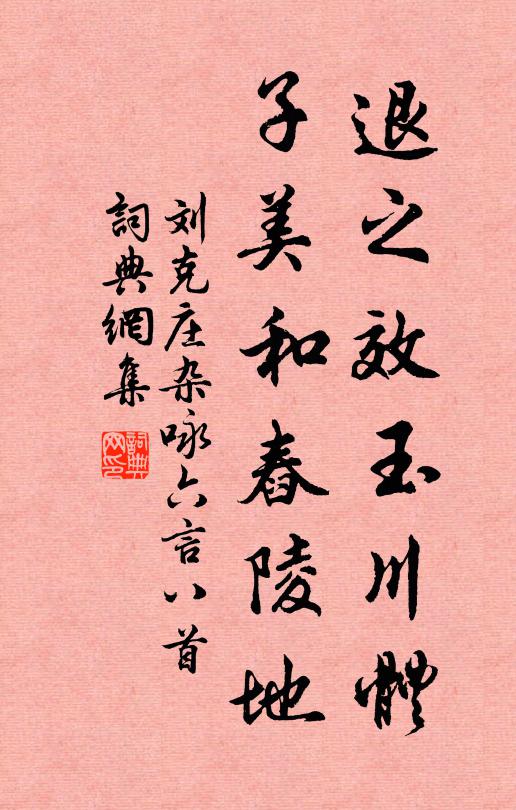 退之效玉川體
子美和舂陵地
刘克庄杂咏六言八首
詞典網集
詞典網印